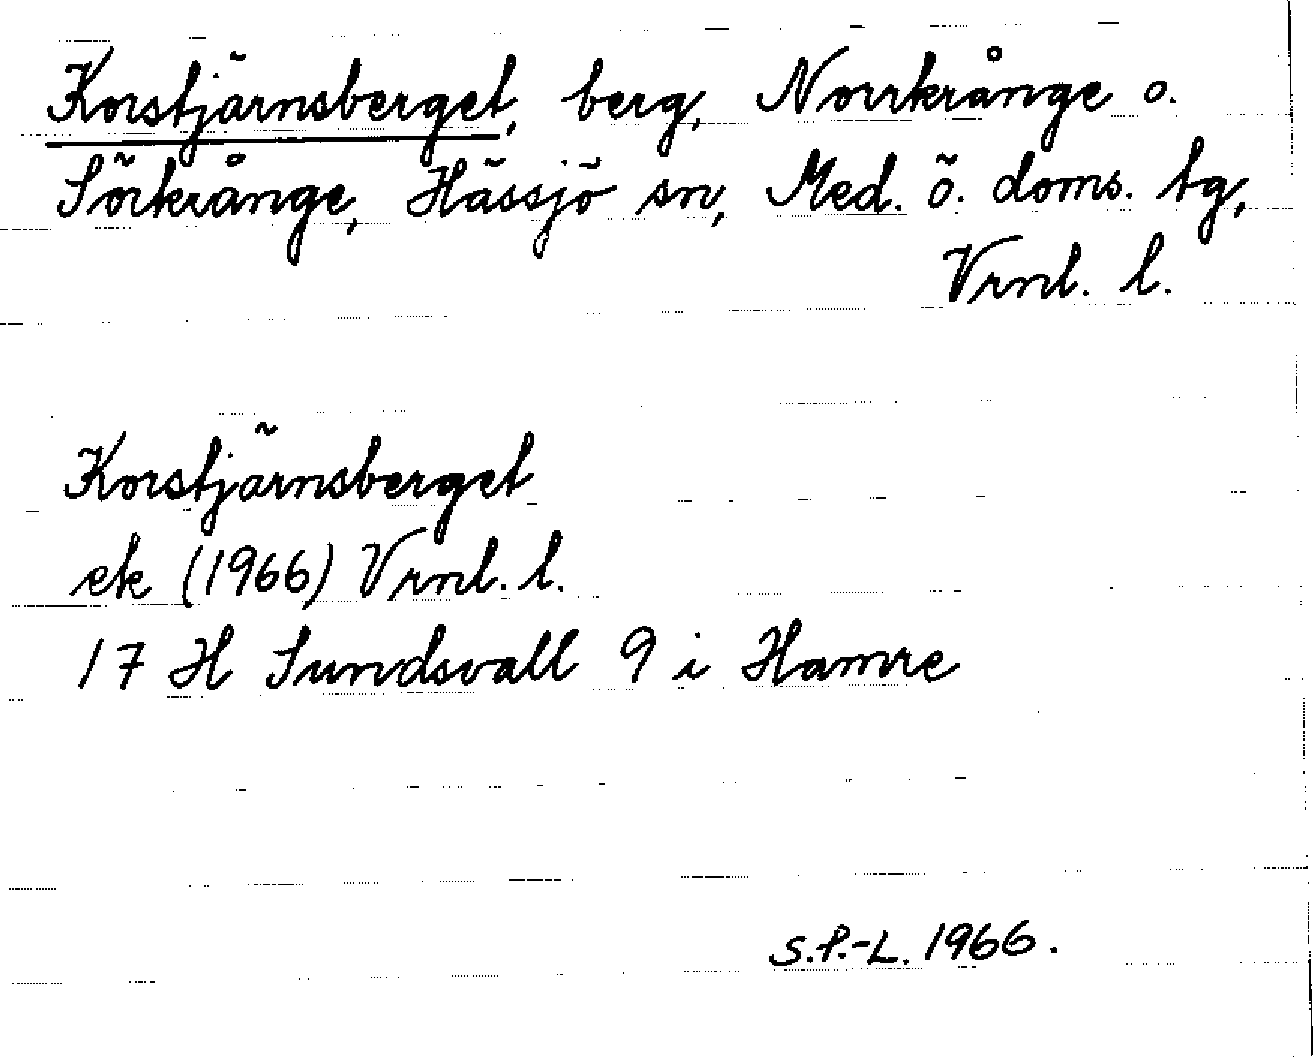 Korstjärnsberget, berg, Norrkrånge o.
Sörkrånge, Hässjö sn, Med. ö. doms. tg,
Vrnl. l.
Korstjärnsberget
ek (1966) Vrnl. l.
17 H Sundsvall 9 i Hamre
S.P.-L. 1966.